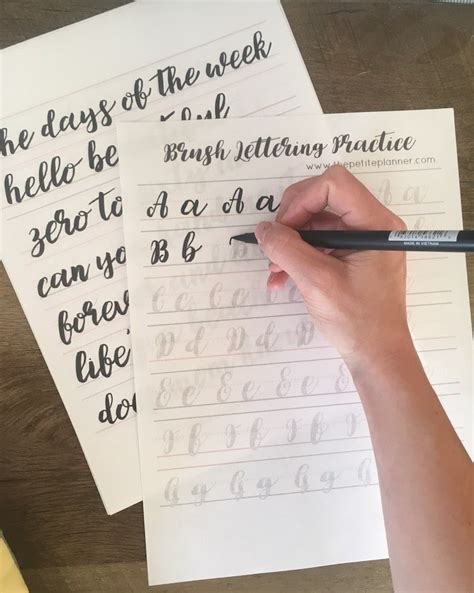 he days of the week
hello be
zero to
can you
forev
libe
do
Brush Lettering Practice
www.thepetiteplanner.com
A a A a
B b B
C c C c
D d D d
E e E e E e
F f F f F f
G g G g G g
MADE IN VIETNAM